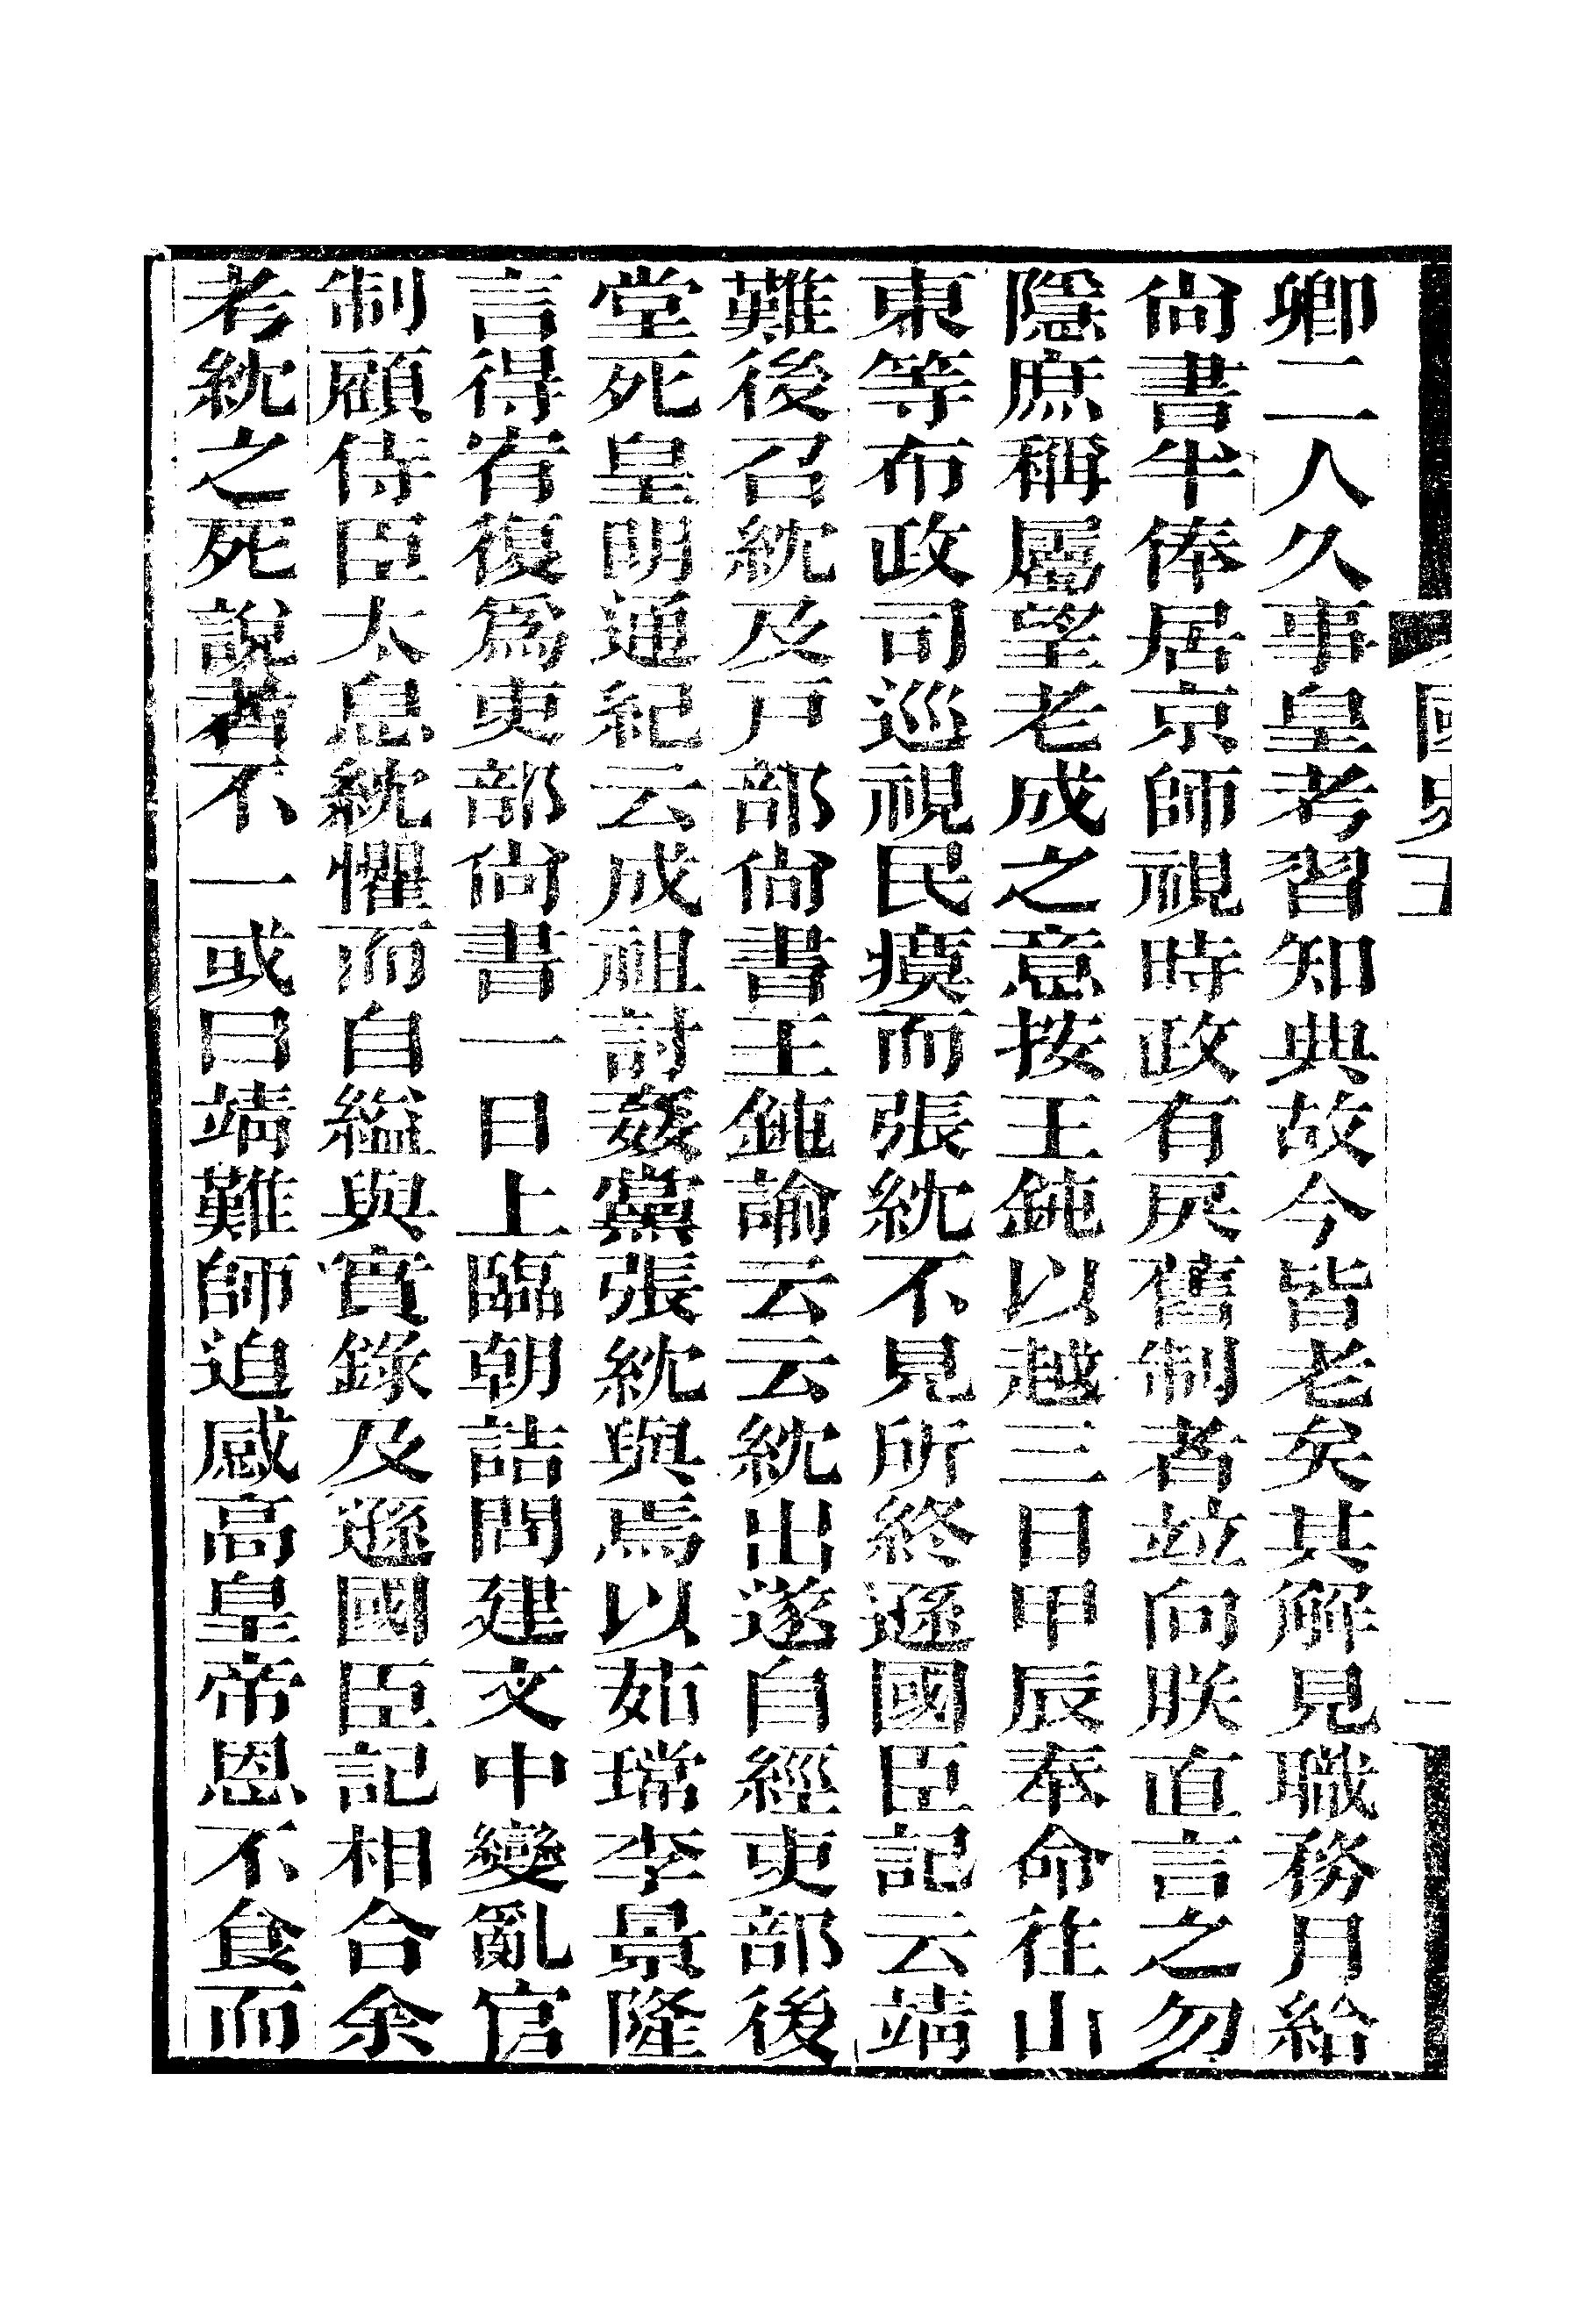 國史
一
卿二人久事皇考習知典故今皆老矣其解見職務月給
尚書半俸居京師視時政有戾舊制者竝向朕直言之勿
隱庶稱屬望老成之意按王鈍以越三日甲辰奉命往山
東等布政司巡視民瘼而張紞不見所終遜國臣記云靖
難後召紞及戸部尚書王鈍諭云云紞出遂自經吏部後
堂死皇明通紀云成祖討姦黨張紞與焉以茹瑺李景隆
言得宥復爲吏部尚書一日上臨朝詰問建文中變亂官
制顧侍臣太息紞懼而自縊與實錄及遜國臣記相合余
考紞之死說者不一或曰靖難師迫感高皇帝恩不食而